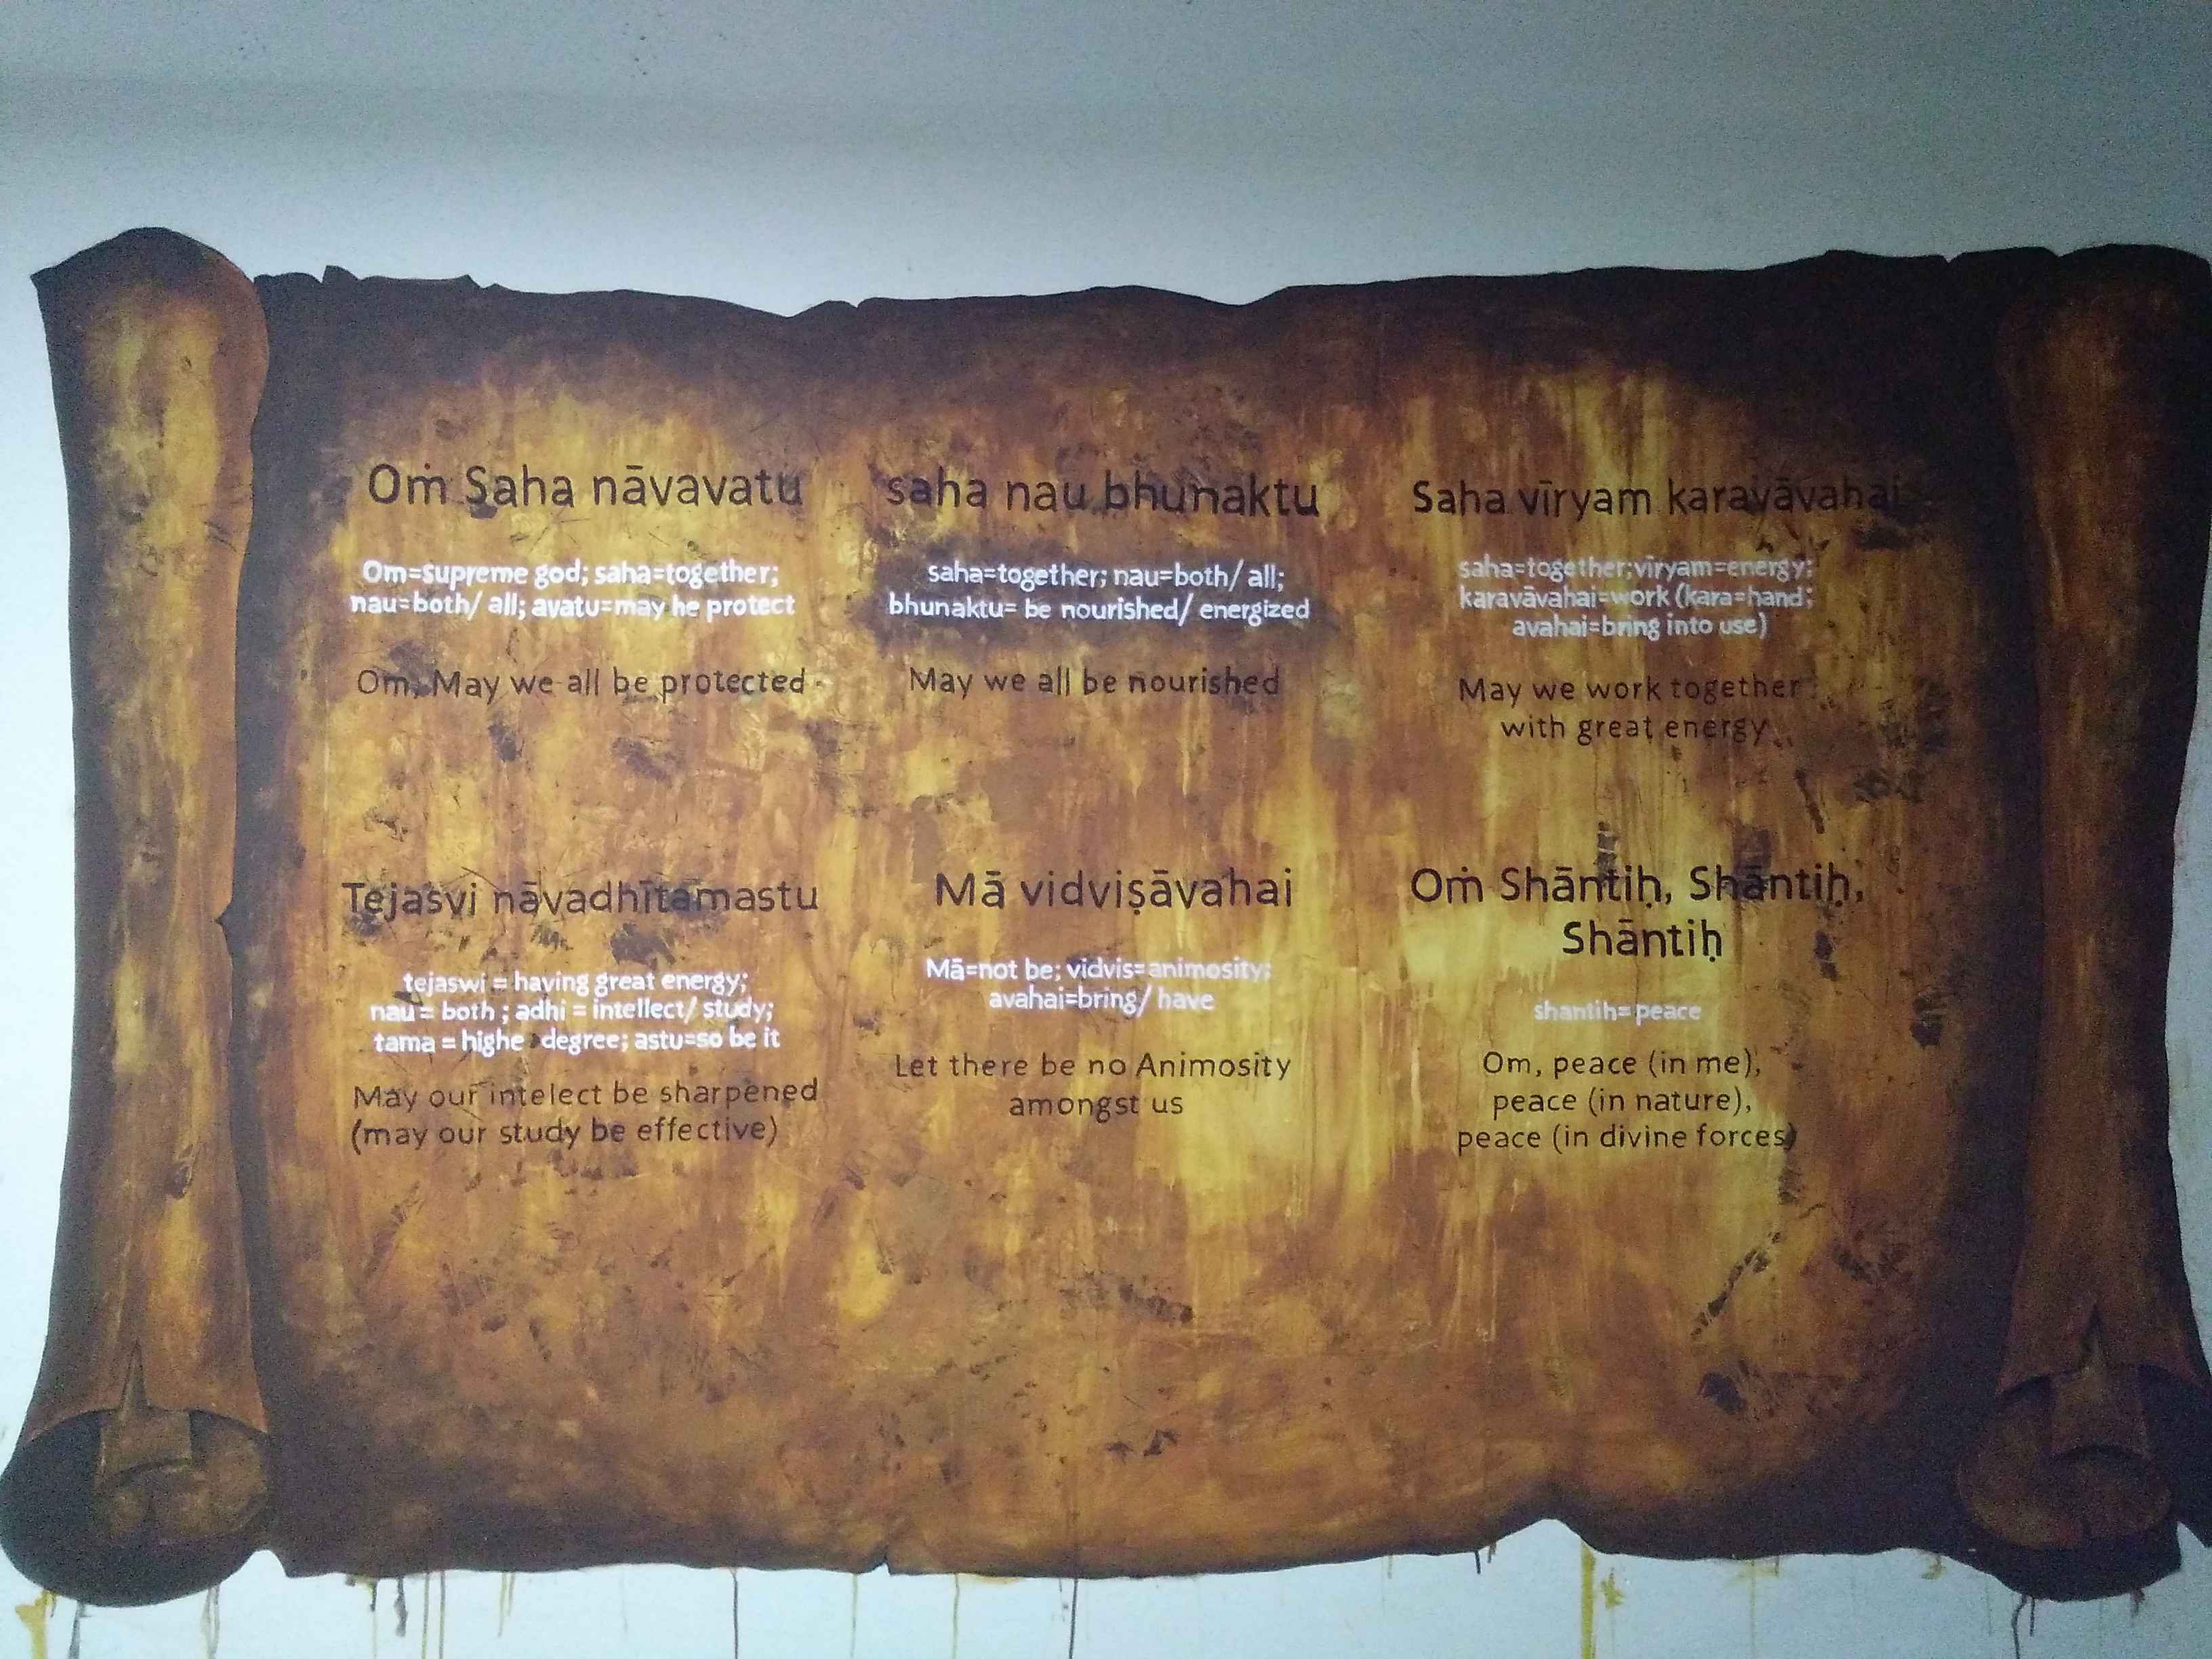 Oṁ Saha nāvavatu
Om=supreme god; saha=together;
nau=both/ all; avatu=may he protect
Om, May we all be protected
saha nau bhunaktu
saha=together; nau=both/ all;
bhunaktu= be nourished/ energized
May we all be nourished
Saha vīryam karavāvahai
saha=together;vīryam=energy;
karavāvahai=work (kara=hand;
avahai=bring into use)
May we work together
with great energy
Tejasvi nāvadhītamastu
tejaswi = having great energy;
nau = both ; adhi = intellect/ study;
tama = highe degree; astu=so be it
May our intelect be sharpened
(may our study be effective)
Mā vidviṣāvahai
Mā=not be; vidvis=animosity;
avahai=bring/ have
Let there be no Animosity
amongst us
Oṁ Shāntiḥ, Shāntiḥ,
Shāntiḥ
shantih=peace
Om, peace (in me),
peace (in nature),
peace (in divine forces)